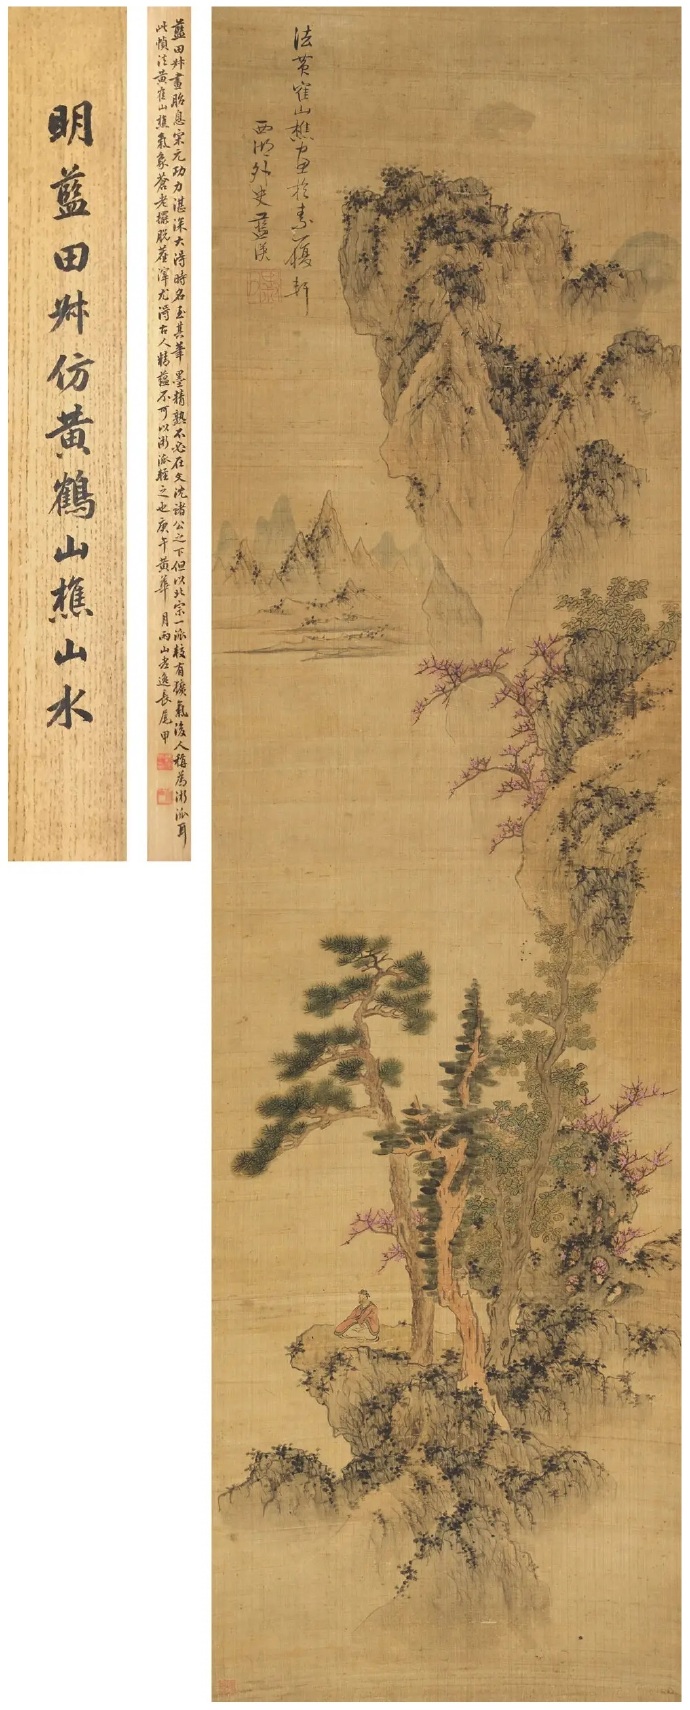 法黃寉山樵畫於素履軒
西湖外史藍瑛
藍田叔畫胎息宋元功力湛深大得時名至其筆墨精熟不必在文沈諸公之下但以北宗一派較有獷氣後人稱為浙派耳
此幀法黃寉山樵氣象蒼老擺脫蹊渾尤得古人精蘊不可以浙派輕之也庚午黃華月雨山老逸長尾甲
明藍田叔仿黃鶴山樵山水